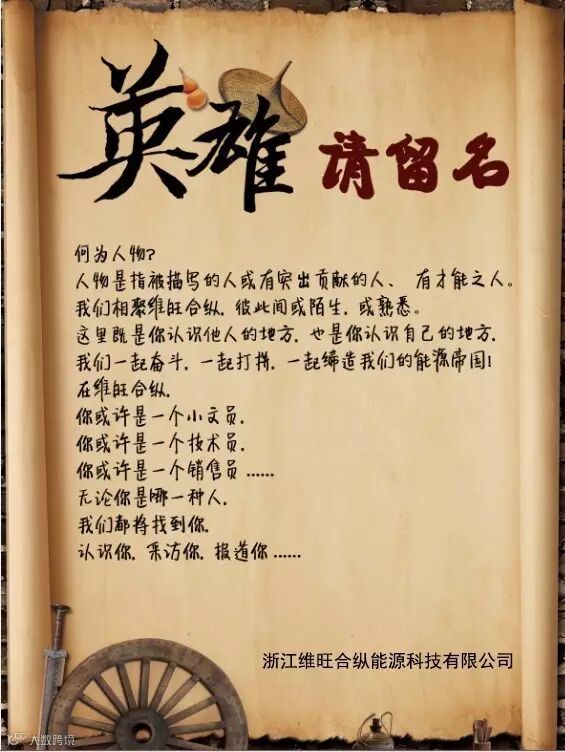 英雄 请留名
何为人物？
人物是指被描写的人或有突出贡献的人、有才能之人。
我们相聚维旺合纵，彼此间或陌生，或熟悉。
这里既是你认识他人的地方，也是你认识自己的地方，
我们一起奋斗，一起打拼，一起缔造我们的能源帝国！
在维旺合纵，
你或许是一个小文员，
你或许是一个技术员，
你或许是一个销售员……
无论你是哪一种人，
我们都将找到你，
认识你，采访你，报道你……
浙江维旺合纵能源科技有限公司
大数跨境